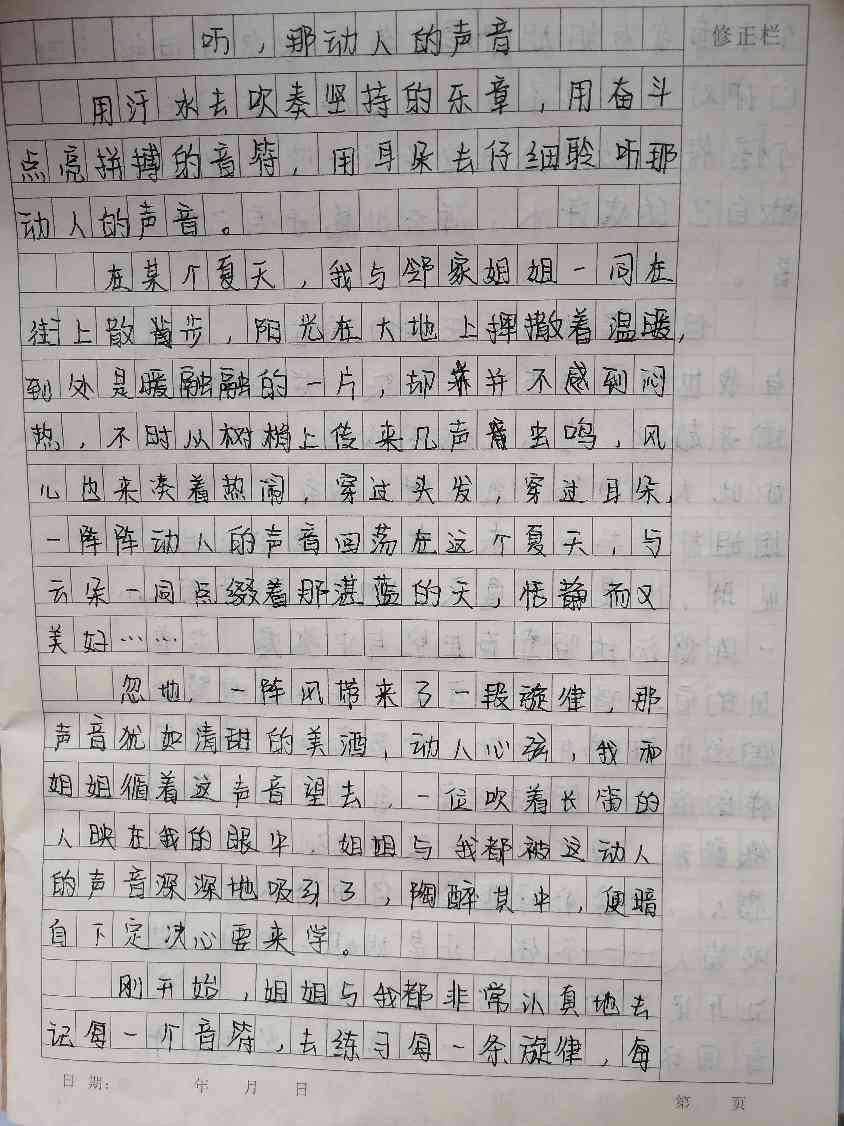 听，那动人的声音
修正栏
用汗水去吹奏坚持的乐章，用奋斗
点亮拼搏的音符，用耳朵去仔细聆听那
动人的声音。
在某个夏天，我与邻家姐姐一同在
街上散步，阳光在大地上挥撒着温暖，
到处是暖融融的一片，却并不感到闷
热，不时从树梢上传来几声虫鸣，风
儿也来凑着热闹，穿过头发，穿过耳朵，
一阵阵动人的声音回荡在这个夏天，与
云朵一同点缀着那湛蓝的天，恬静而又
美好……
忽地，一阵风带来了一段旋律，那
声音犹如清甜的美酒，动人心弦，我和
姐姐循着这声音望去，一位吹着长笛的
人映在我的眼中，姐姐与我都被这动人
的声音深深地吸引了，陶醉其中，便暗
自下定决心要来学。
刚开始，姐姐与我都非常认真地去
记每一个音符，去练习每一条旋律，每
日期： 年 月 日
第 页